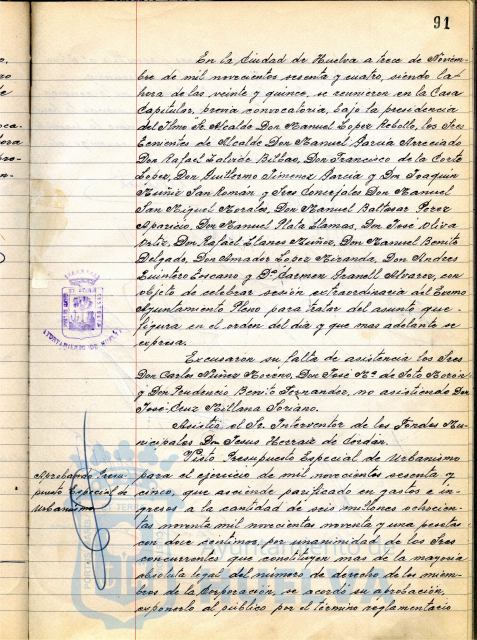 91
En la Ciudad de Huelva a trece de Noviem-
bre de mil novecientos sesenta y cuatro, siendo la
hora de las veinte y quince, se reunieron en la Casa
Capitular, previa convocatoria, bajo la presidencia
del Ilmo Sr. Alcalde Don Manuel López Rebollo, los Sres
Tenientes de Alcalde Don Manuel García Arreciado
Don Rafael Zalvide Bilbao, Don Francisco de la Corte
López, Don Guillermo Jimenez García y Don Joaquin
Muñiz San Román y Sres Concejales Don Manuel
San Miguel Morales, Don Manuel Baltasar Pérez
Aparicio, Don Manuel Plata Llamas, Don José Oliva
Ortiz, Don Rafael Llanes Muñoz, Don Manuel Benito
Delgado, Don Amador López Miranda, Don Andres
Quintero Toscano y Dª Carmen Granell Alvarez, con
objeto de celebrar sesión extraordinaria del Excmo
Ayuntamiento Pleno para tratar del asunto que
figura en el orden del dia y que mas adelante se
expresa.
Excusaron su falta de asistencia los Sres
Don Carlos Núñez Moreno, Don José Mª de Soto Morón
y Don Prudencio Benito Fernandez, no asistiendo Don
José-Cruz Millana Soriano.
Asistía el Sr. Interventor de los Fondos Mu-
nicipales Don Jesus Herraiz de Cordán.
Visto Presupuesto Especial de Urbanismo
Aprobando Presu-
puesto Especial de
Urbanismo
para el ejercicio de mil novecientos sesenta y
cinco, que asciende parificado en gastos e in-
gresos a la cantidad de seis millones ochocien-
tas noventa mil novecientas noventa y una pesetas
con doce centimos, por unanimidad de los Sres
concurrentes que constituyen mas de la mayoria
absoluta legal del número de derecho de los miem-
bros de la Corporación, se acordó su aprobación,
exponerlo al público por el término reglamentario
AYUNTAMIENTO DE HUELVA
Ayuntamiento de